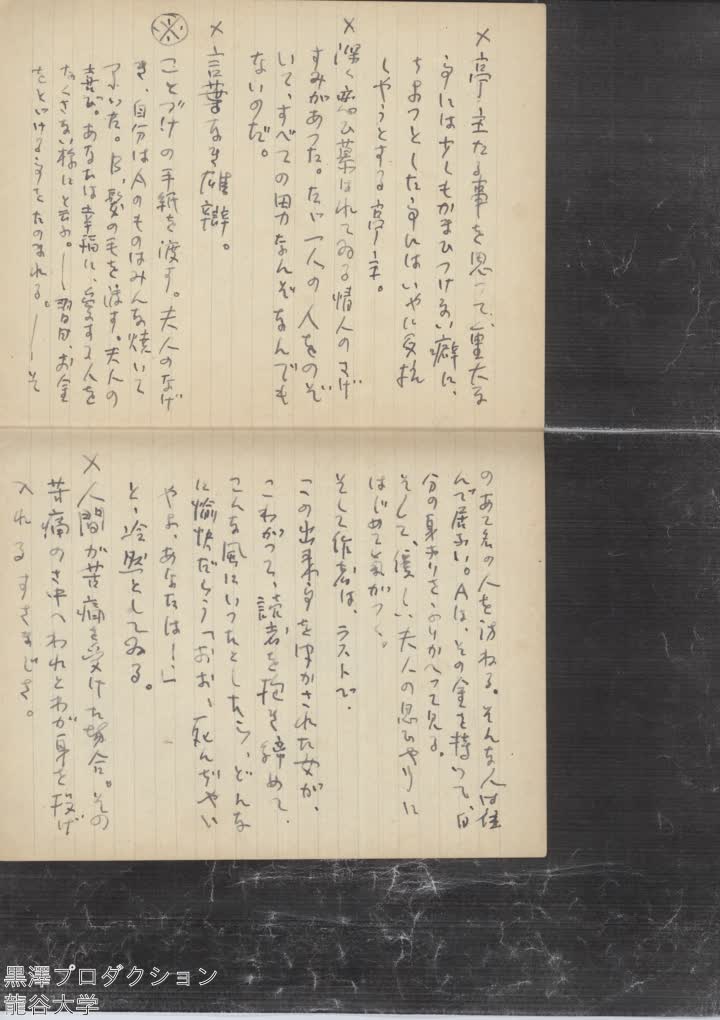 ×亭主たる事を思って、重大な
事には少しもかまひつけない癖に、
ちょっとした事にはいやに反抗
しやうとする亭主。
×深く恋ひ慕はれてゐる情人のさげ
すみがあった。たゞ一人の人をのぞ
いて、すべての男なんぞなんでも
ないのだ。
×言葉なき雄辯。
ことづけの手紙を渡す。夫人のなげ
き、自分はAのものはみんな焼いて
了いた。B、髪の毛を渡す。夫人の
喜び。あなたは幸福に、愛する人を
なくさない様にと云ふ。――翌日、お金
をとゞける事をたのまれる。――そ
のあて名の人を訪ねる。そんな人は住
んで居ない。Aは、その金を持って、自
分の身なりをふりかへって見る。
そして、優しい夫人の思ひやりに
はじめて気がつく。
そして作者は、ラストで、
この出来事をきかされた女が、
こわがって、読者を抱き締めて、
こんな風にいったとしたら、どんな
に愉快だらう「おお、死んぢやい
やよ、あなたは！」
と、冷然としてゐる。
×人間が苦痛を受けた場合。その
苦痛のさ中へわれとわが身を投げ
入れるすさまじさ。
黒澤プロダクション
龍谷大学